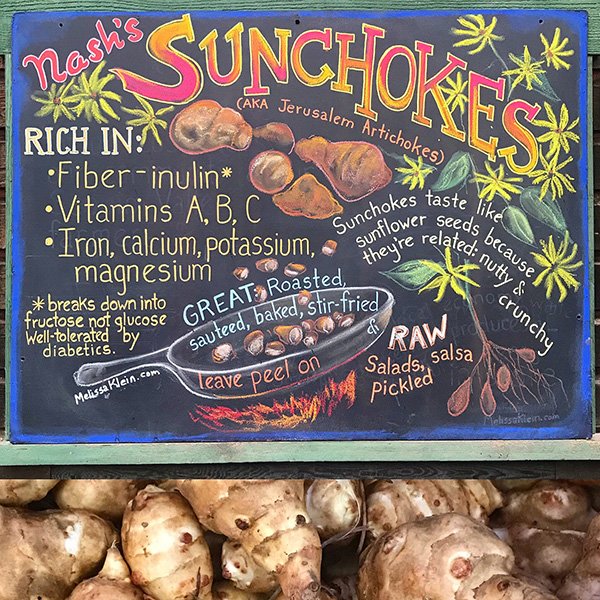 Nash's
SUNCHOKES
(AKA Jerusalem Artichokes)
RICH IN:
•Fiber-inulin*
•Vitamins A, B, C
•Iron, calcium, potassium,
magnesium
* breaks down into
fructose not glucose
Well-tolerated by
diabetics.
Sunchokes taste like
sunflower seeds because
they're related: nutty &
crunchy
GREAT Roasted,
sauteed, baked, stir-fried
&
leave peel on
RAW
Salads, salsa
pickled
MelissaKlein.com
MelissaKlein.com